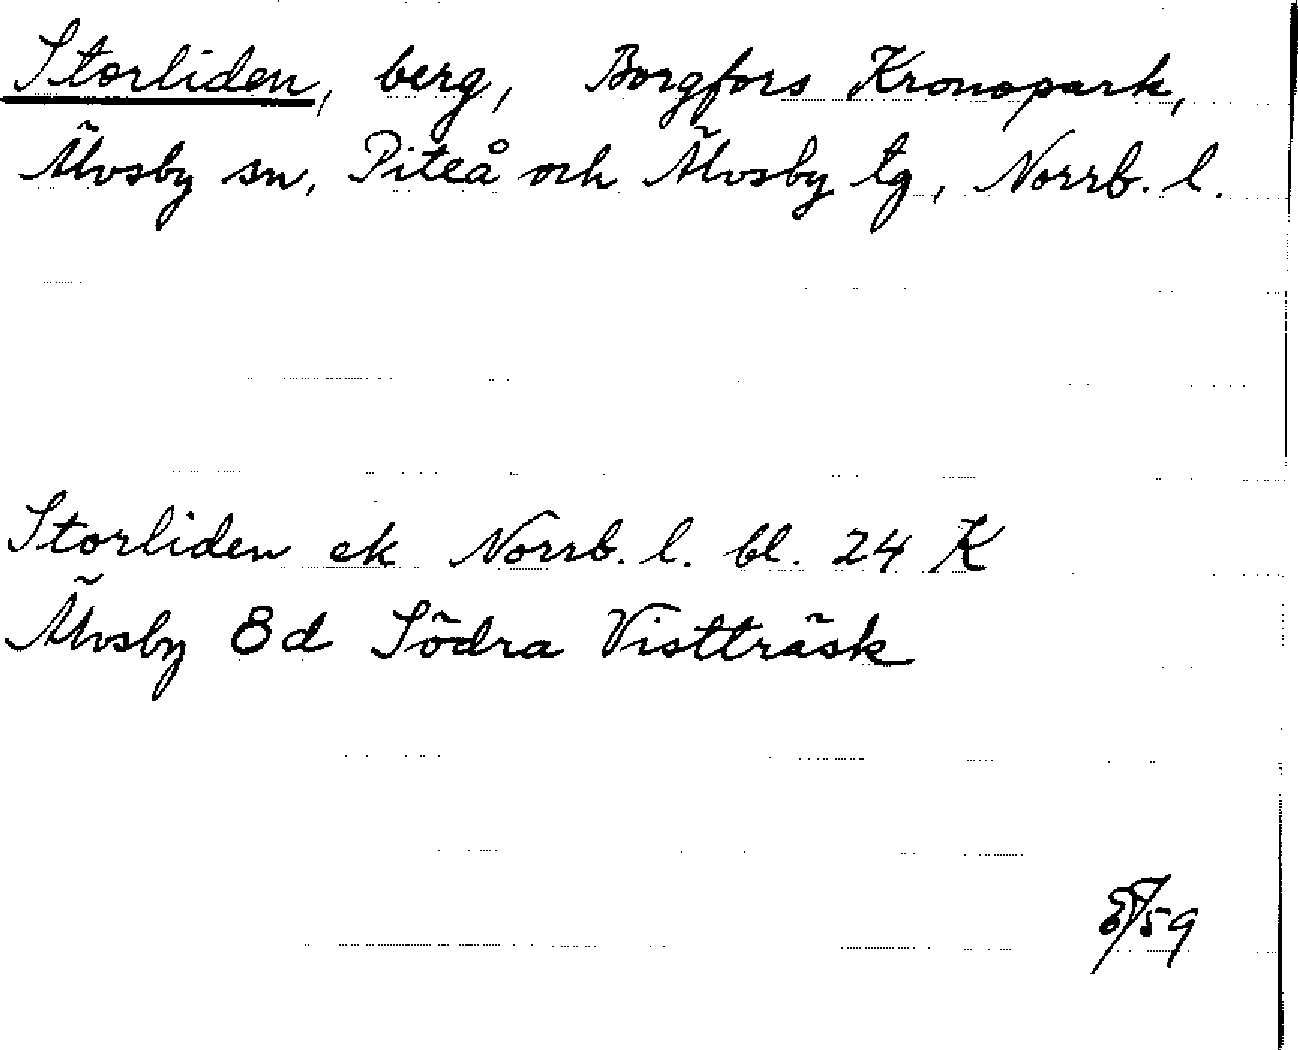 Storliden, berg, Borgfors Kronopark,
Älvsby sn, Piteå och Älvsby tg, Norrb. l.
Storliden ek Norrb. l. bl. 24 K
Älvsby 8d Södra Vistträsk
59